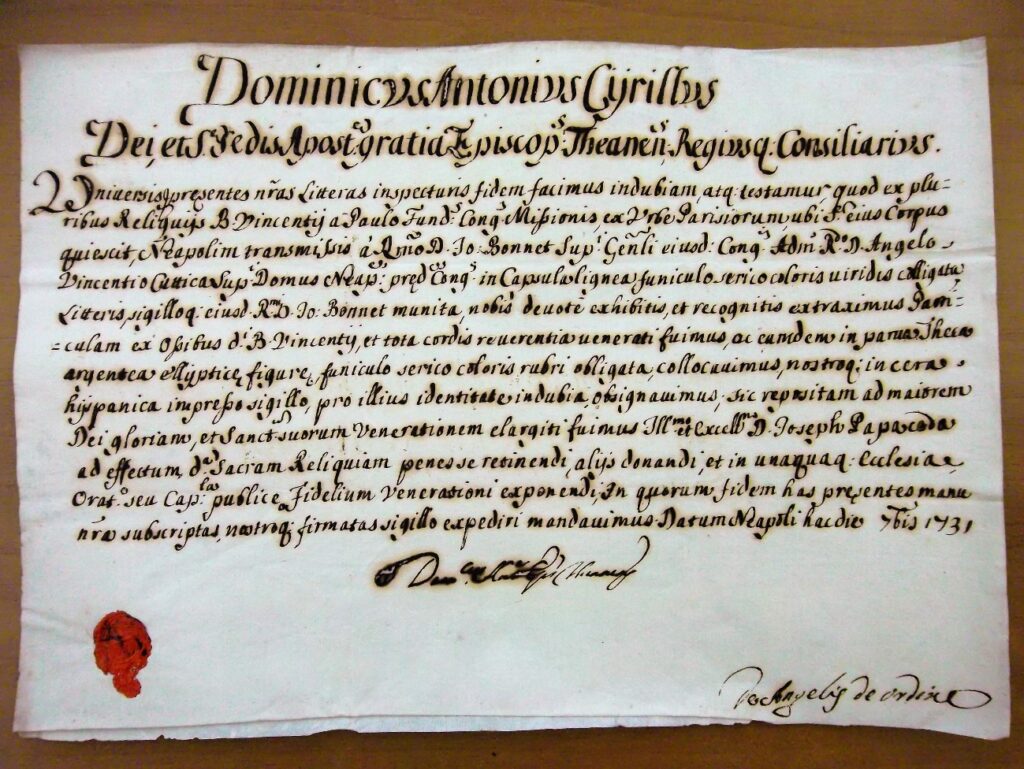 Dominicvs Antonivs Cÿrillvs
Dei, et S. Sedis Apost.ᶜᵃ gratia Episcop.ˢ Theanen.ˢ Regivsq. Consiliarivs.
Vniversis presentes nr̃as Litteras inspecturis fidem facimus indubiam, atq; testamur, quod ex plu-
ribus Reliquijs B. Vincentij a Paulo Fund.ˢ Cong.ˢ Missionis, ex Vrbe Parisiorum, ubi eius Corpus
quiescit, Neapolim transmissis à Rm̃o D. Jo: Bonnet Sup.ʳⁱ Gen̄li eiusd: Cong.ˢ Adm. R.ᵒ D. Angelo
Vincentio Cuttica Sup.ʳⁱ Domus Neap.ˢ pred.ᵉ Cong.ˢ in Capsula lignea funiculo serico coloris viridis colligata
Litteris, sigilloq; eiusd. R.ᵐⁱ D. Jo: Bonnet munita, nobis devotè exhibitis, et recognitis extraximus Parti-
=culam ex Ossibus d.ⁱ B. Vincentij, et tota cordis reverentia venerati fuimus, ac eamdem in parua Theca
argentea ellypticę figurę, funiculo serico coloris rubri obligata, collocauimus, nostroq; in cera
hispanica impresso sigillo, pro illius identitate indubia, obsignauimus, sic repositam ad maiorem
Dei gloriam, et Sanct. suorum Venerationem elargiti fuimus Ill.ᵐᵒ et Excell.ᵐᵒ D. Joseph Papacoda
ad effectum, d.ᵃᵐ Sacram Reliquiam penes se retinendi, alijs donandi, et in unaquaq; Ecclesia,
Orat.ᵒ seu Cap.ˡᵃ publicę Fidelium Venerationi exponendi, In quorum fidem has presentes manu
nr̃a subscriptas, nostroq; firmatas sigillo expediri mandauimus. Datum Neapoli hac die 7bris 1731
de Angelis de ordine